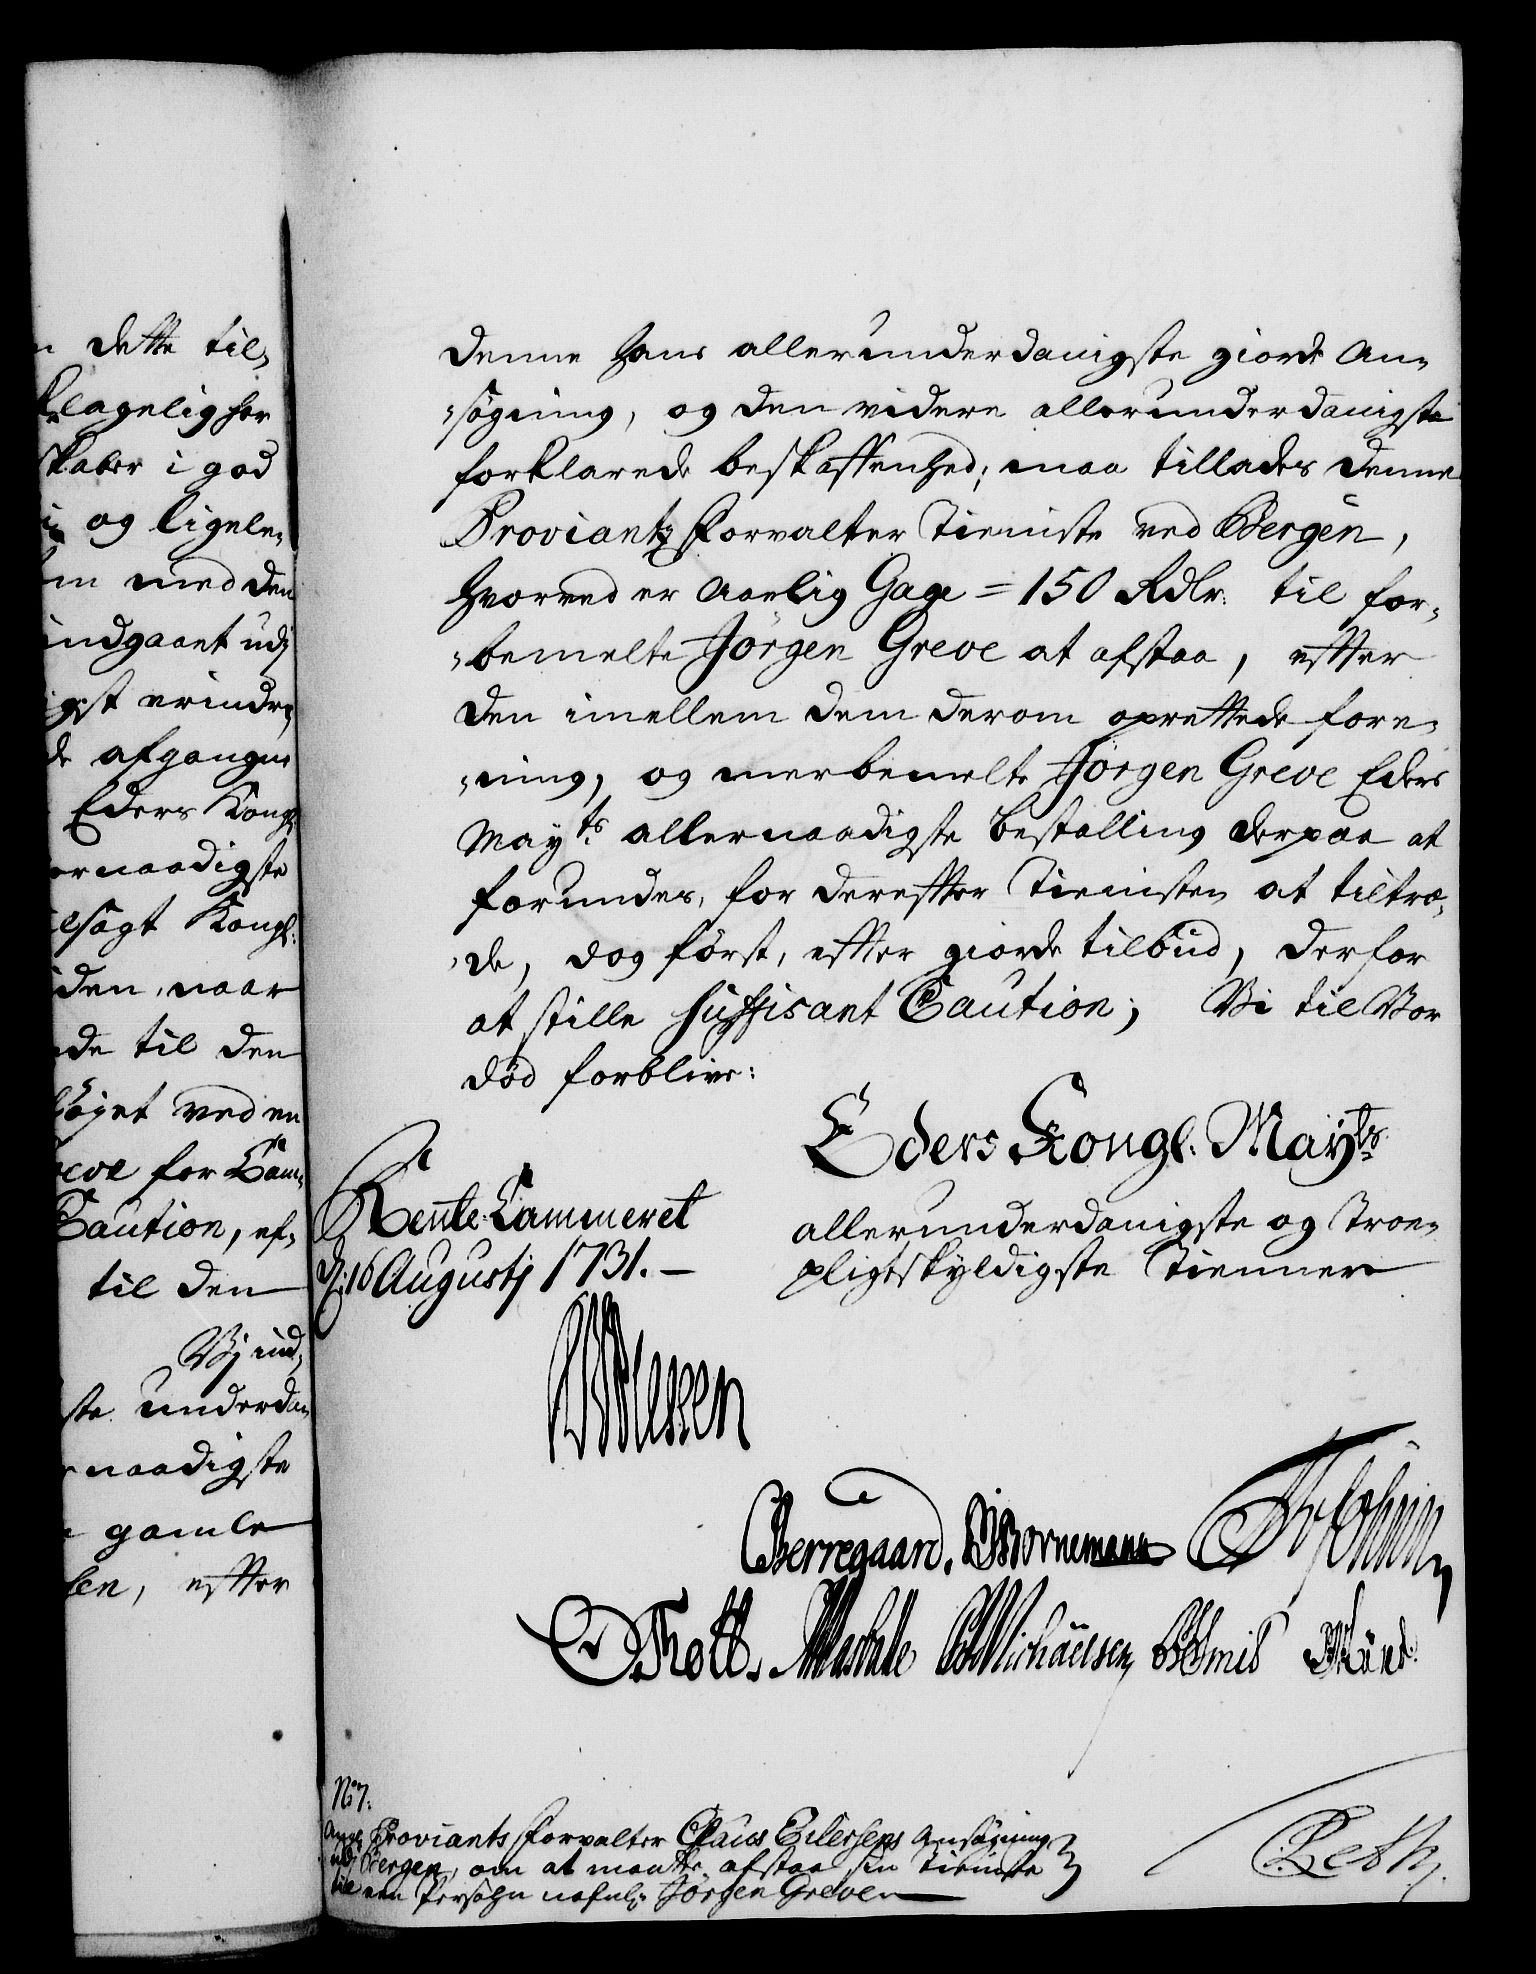 n dette til„
klagelig for
skaber i god
og ligele„
med den
indgaaet udj
gst erindre,
de afgangne
Eders Kongl:
ernaadigste
ilsagt Kongl:
iden, naar
de til den
føjet ved en
eve for Cam„
Caution, ef„
til den
Vj ind„
ste underda„
rnaadigste
gamle
sen, effter
denne hans allerunderdanigste giorde An„
„søgning, og den videre allerunderdanigste
forklarede beskaffenhed; maa tillades denne
Proviantz Forvalter Tieniste ved Bergen,
hvorved er Aarlig Gage = 150 Rdlr: til for„
„bemelte Jörgen Greve at afstaa, effter
den imellem dem derom oprettede fore„
„ning, og merbemelte Jörgen Greve Eders
Mayts allernaadigste Bestalling derpaa at
forundes, for dereffter Tienisten at tiltræ„
„de, dog først, effter giorde tilbud, derfor
at stille suffisant Caution; Vi til Vor
død forblive:
Eders Kongl: Mayts
allerunderdanigste og Troe„
pligtskyldigste Tiennere
Rente Cammeret
d: 16 Augustj 1731. –
CAvPlessen
Berregaard. Bornemann
JThott. CMichaelsen
No 7.
Ang: Proviants Forvalter Claus Eilersens Ansøgning
udj Bergen, om at maatte afstaa sin Tieniste
til een Persohn nafnlg Jörgen Greve